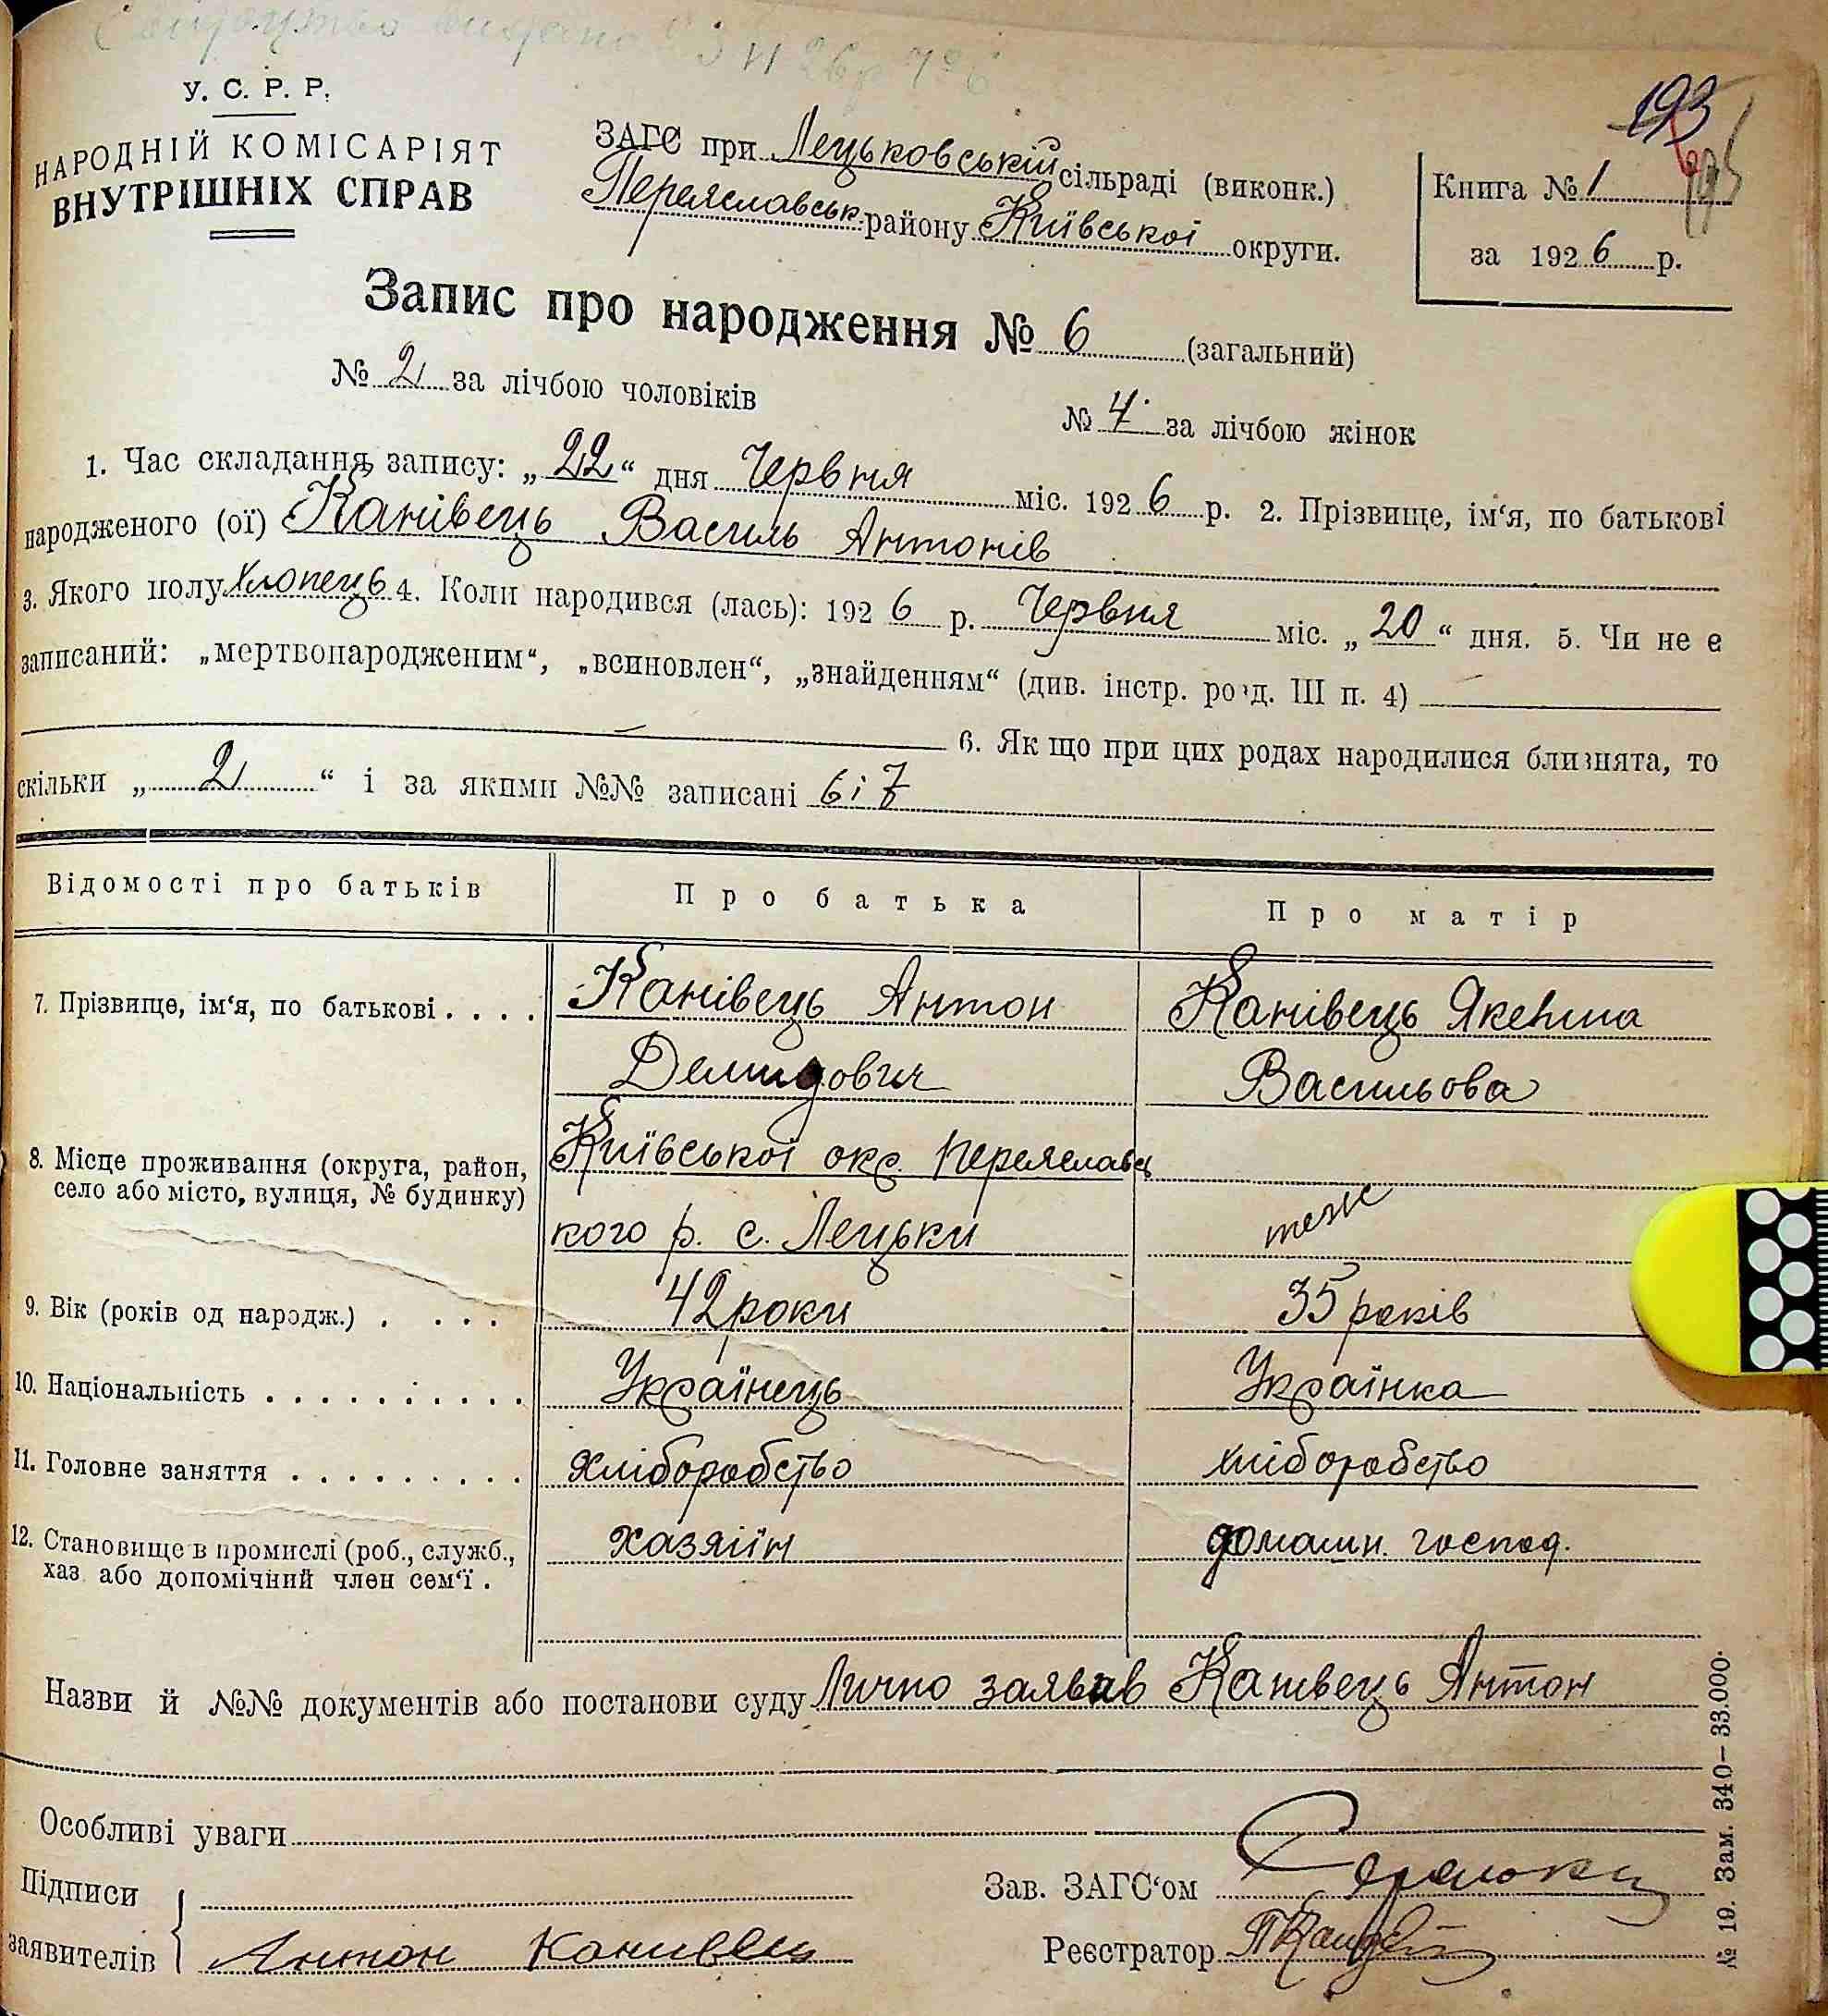 У. С. Р. Р.
НАРОДНІЙ КОМІСАРІЯТ
ВНУТРІШНІХ СПРАВ
ЗАГС при Лецьковській сільраді (виконк.)
Переяславськ. району Київської округи.
193
Книга № 1
за 1926 р.
Запис про народження № 6 (загальний)
№ 2 за лічбою чоловіків
№ 4 за лічбою жінок
1. Час складання запису: „22“ дня Червня міс. 1926 р. 2. Прізвище, ім‘я, по батькові
народженого (ої) Канівець Василь Антонів
3. Якого полу хлопець 4. Коли народився (лась): 1926 р. Червня міс. „20“ дня. 5. Чи не є
записаний: „мертвонародженим“, „всиновлен“, „знайденням“ (див. інстр. розд. III п. 4)
6. Як що при цих родах народилися близнята, то
скільки „2“ і за якими №№ записані 6 і 7
Відомості про батьків
Про батька
Про матір
7. Прізвище, ім‘я, по батькові . . . .
Канівець Антон
Канівець Якеһина
Демидович
Васильова
8. Місце проживання (округа, район,
село або місто, вулиця, № будинку)
Київської окр. Переяславсь
кого р. с. Лецьки
теж
9. Вік (років од народж.) . . . . .
42 роки
35 років
10. Національність . . . . . . . . . .
Українець
Українка
11. Головне заняття . . . . . . . . .
хліборобство
хліборобство
12. Становище в промислі (роб., служб.,
хаз. або допомічний член сем‘ї .
хазяїн
домашн. господ.
Назви й №№ документів або постанови суду Лично заявив Канівець Антон
Особливі уваги
Підписи
заявителів
Антон Канивец
Зав. ЗАГС‘ом
Реєстратор
№ 19. Зам. 340—33.000.